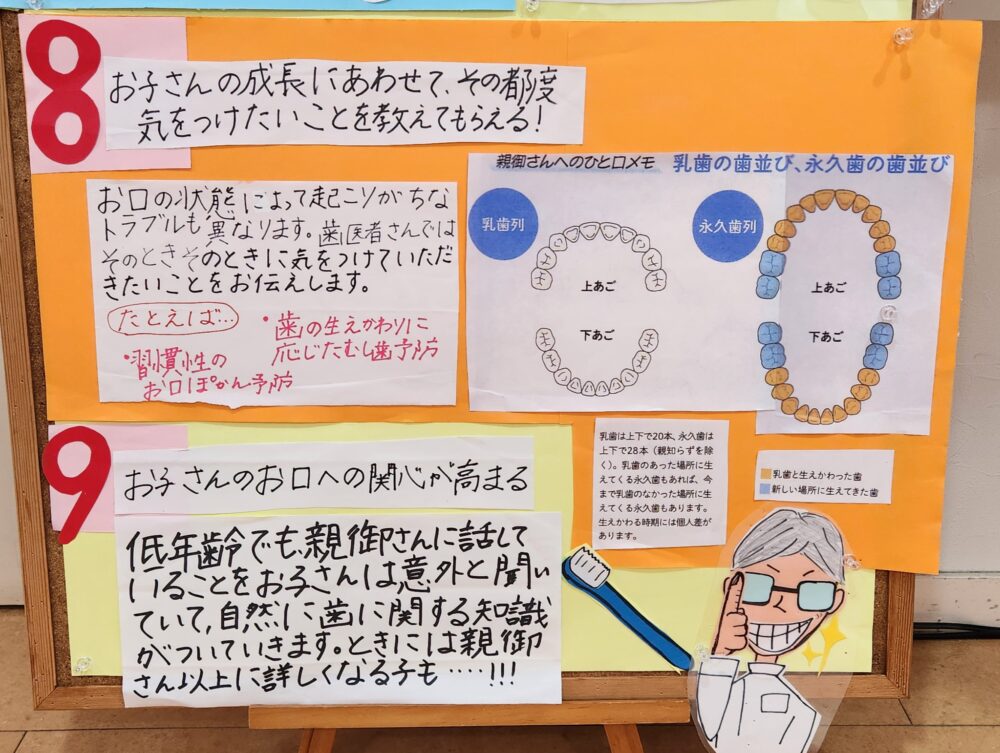 8
お子さんの成長にあわせて、その都度
気をつけたいことを教えてもらえる!
お口の状態によって起こりがちな
トラブルも異なります。歯医者さんでは
そのときそのときに気をつけていただ
きたいことをお伝えします。
たとえば…
・歯の生えかわりに
応じたむし歯予防
・習慣性の
お口ぽかん予防
親御さんへのひと口メモ
乳歯の歯並び、永久歯の歯並び
乳歯列
上あご
下あご
永久歯列
上あご
下あご
乳歯は上下で20本、永久歯は
上下で28本(親知らずを除
く)。乳歯のあった場所に生
えてくる永久歯もあれば、今
まで乳歯のなかった場所に生
えてくる永久歯もあります。
生えかわる時期には個人差が
あります。
乳歯と生えかわった歯
新しい場所に生えてきた歯
9
お子さんのお口への関心が高まる
低年齢でも、親御さんに話して
いることをお子さんは意外と聞い
ていて、自然に歯に関する知識
がついていきます。ときには親御
さん以上に詳しくなる子も……!!!